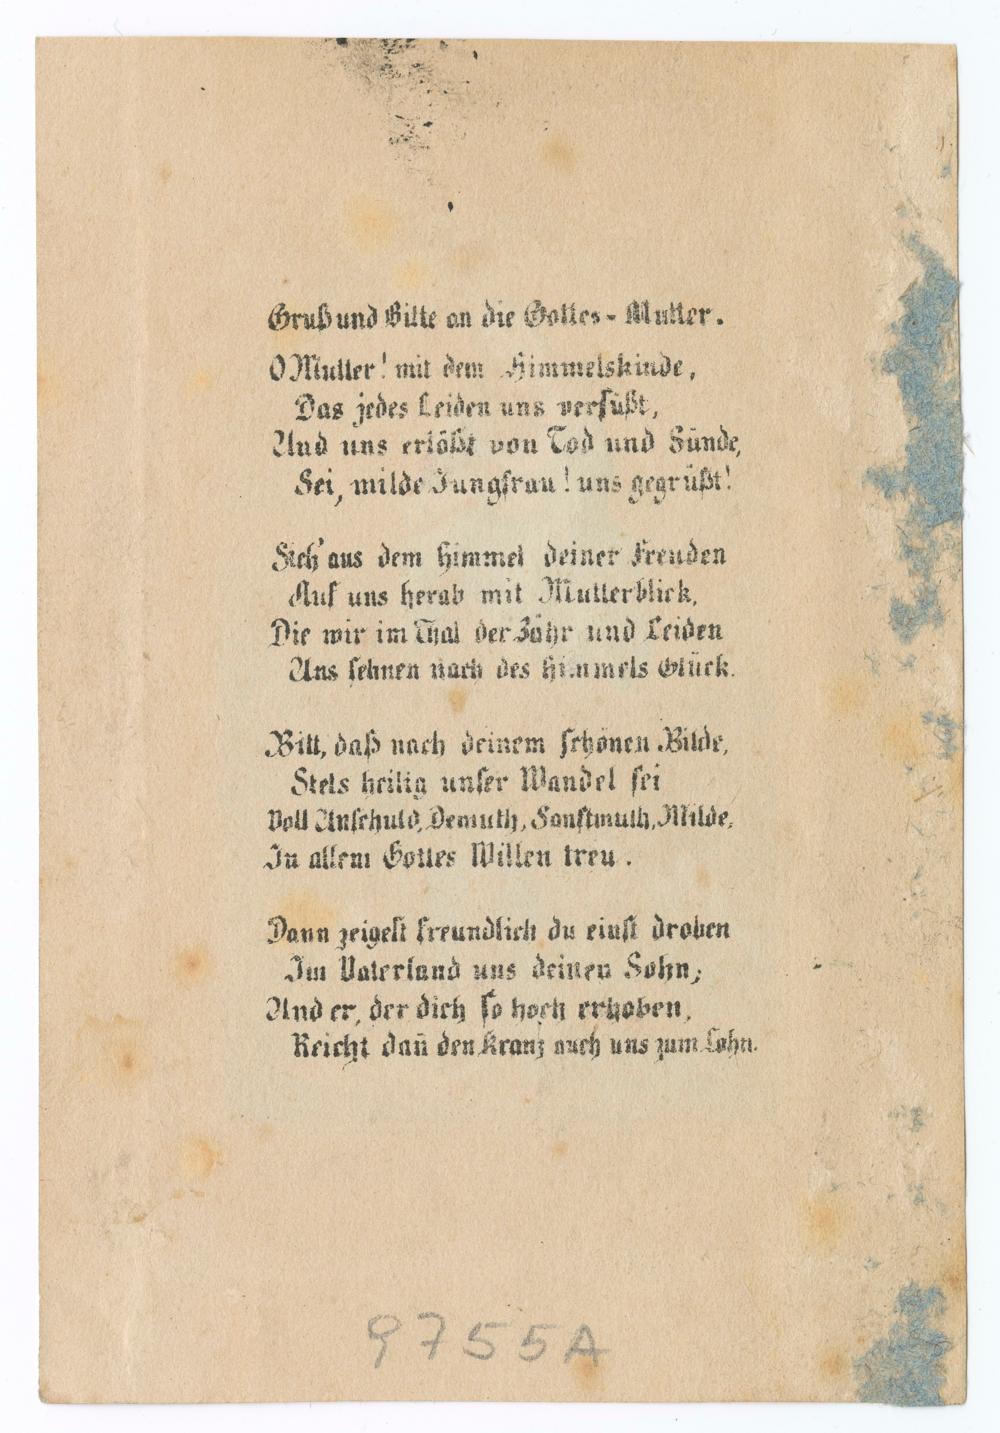 Gruß und Bitte an die Gottes-Mutter.
O Mutter! mit dem Himmelskinde,
Das jedes Leiden uns versüßt,
Und uns erlößt von Tod und Sünde,
Sei, milde Jungfrau! uns gegrüßt!
Sieh' aus dem Himmel deiner Freuden
Auf uns herab mit Mutterblick,
Die wir im Thal der Zähr und Leiden
Uns sehnen nach des Himmels Glück.
Bitt, daß nach deinem schönen Bilde,
Stets heilig unser Wandel sei
Voll Unschuld, Demuth, Sanftmuth, Milde,
In allem Gottes Willen treu.
Dann zeigest freundlich du einst droben
Im Vaterland uns deinen Sohn,
Und er, der dich so hoch erhoben,
Reicht dan̄ den Kranz auch uns zum Lohn.
9755A